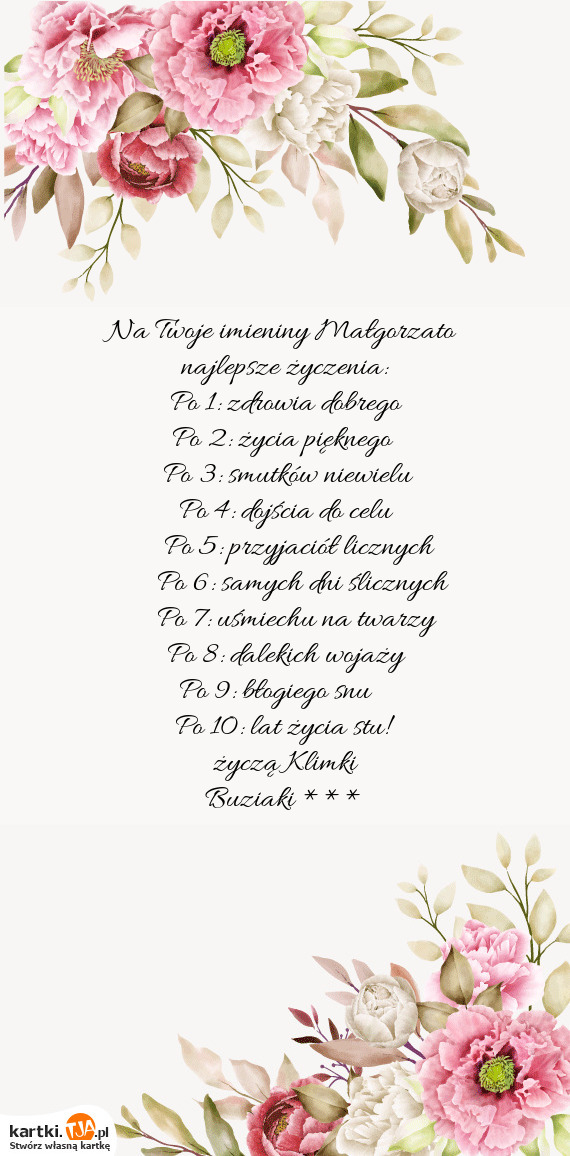 Na Twoje imieniny Małgorzato
najlepsze życzenia:
Po 1: zdrowia dobrego
Po 2: życia pięknego
Po 3: smutków niewielu
Po 4: dojścia do celu
Po 5: przyjaciół licznych
Po 6: samych dni ślicznych
Po 7: uśmiechu na twarzy
Po 8: dalekich wojaży
Po 9: błogiego snu
Po 10: lat życia stu!
życzą Klimki
Buziaki * * *
kartki.TJA.pl
Stwórz własną kartkę